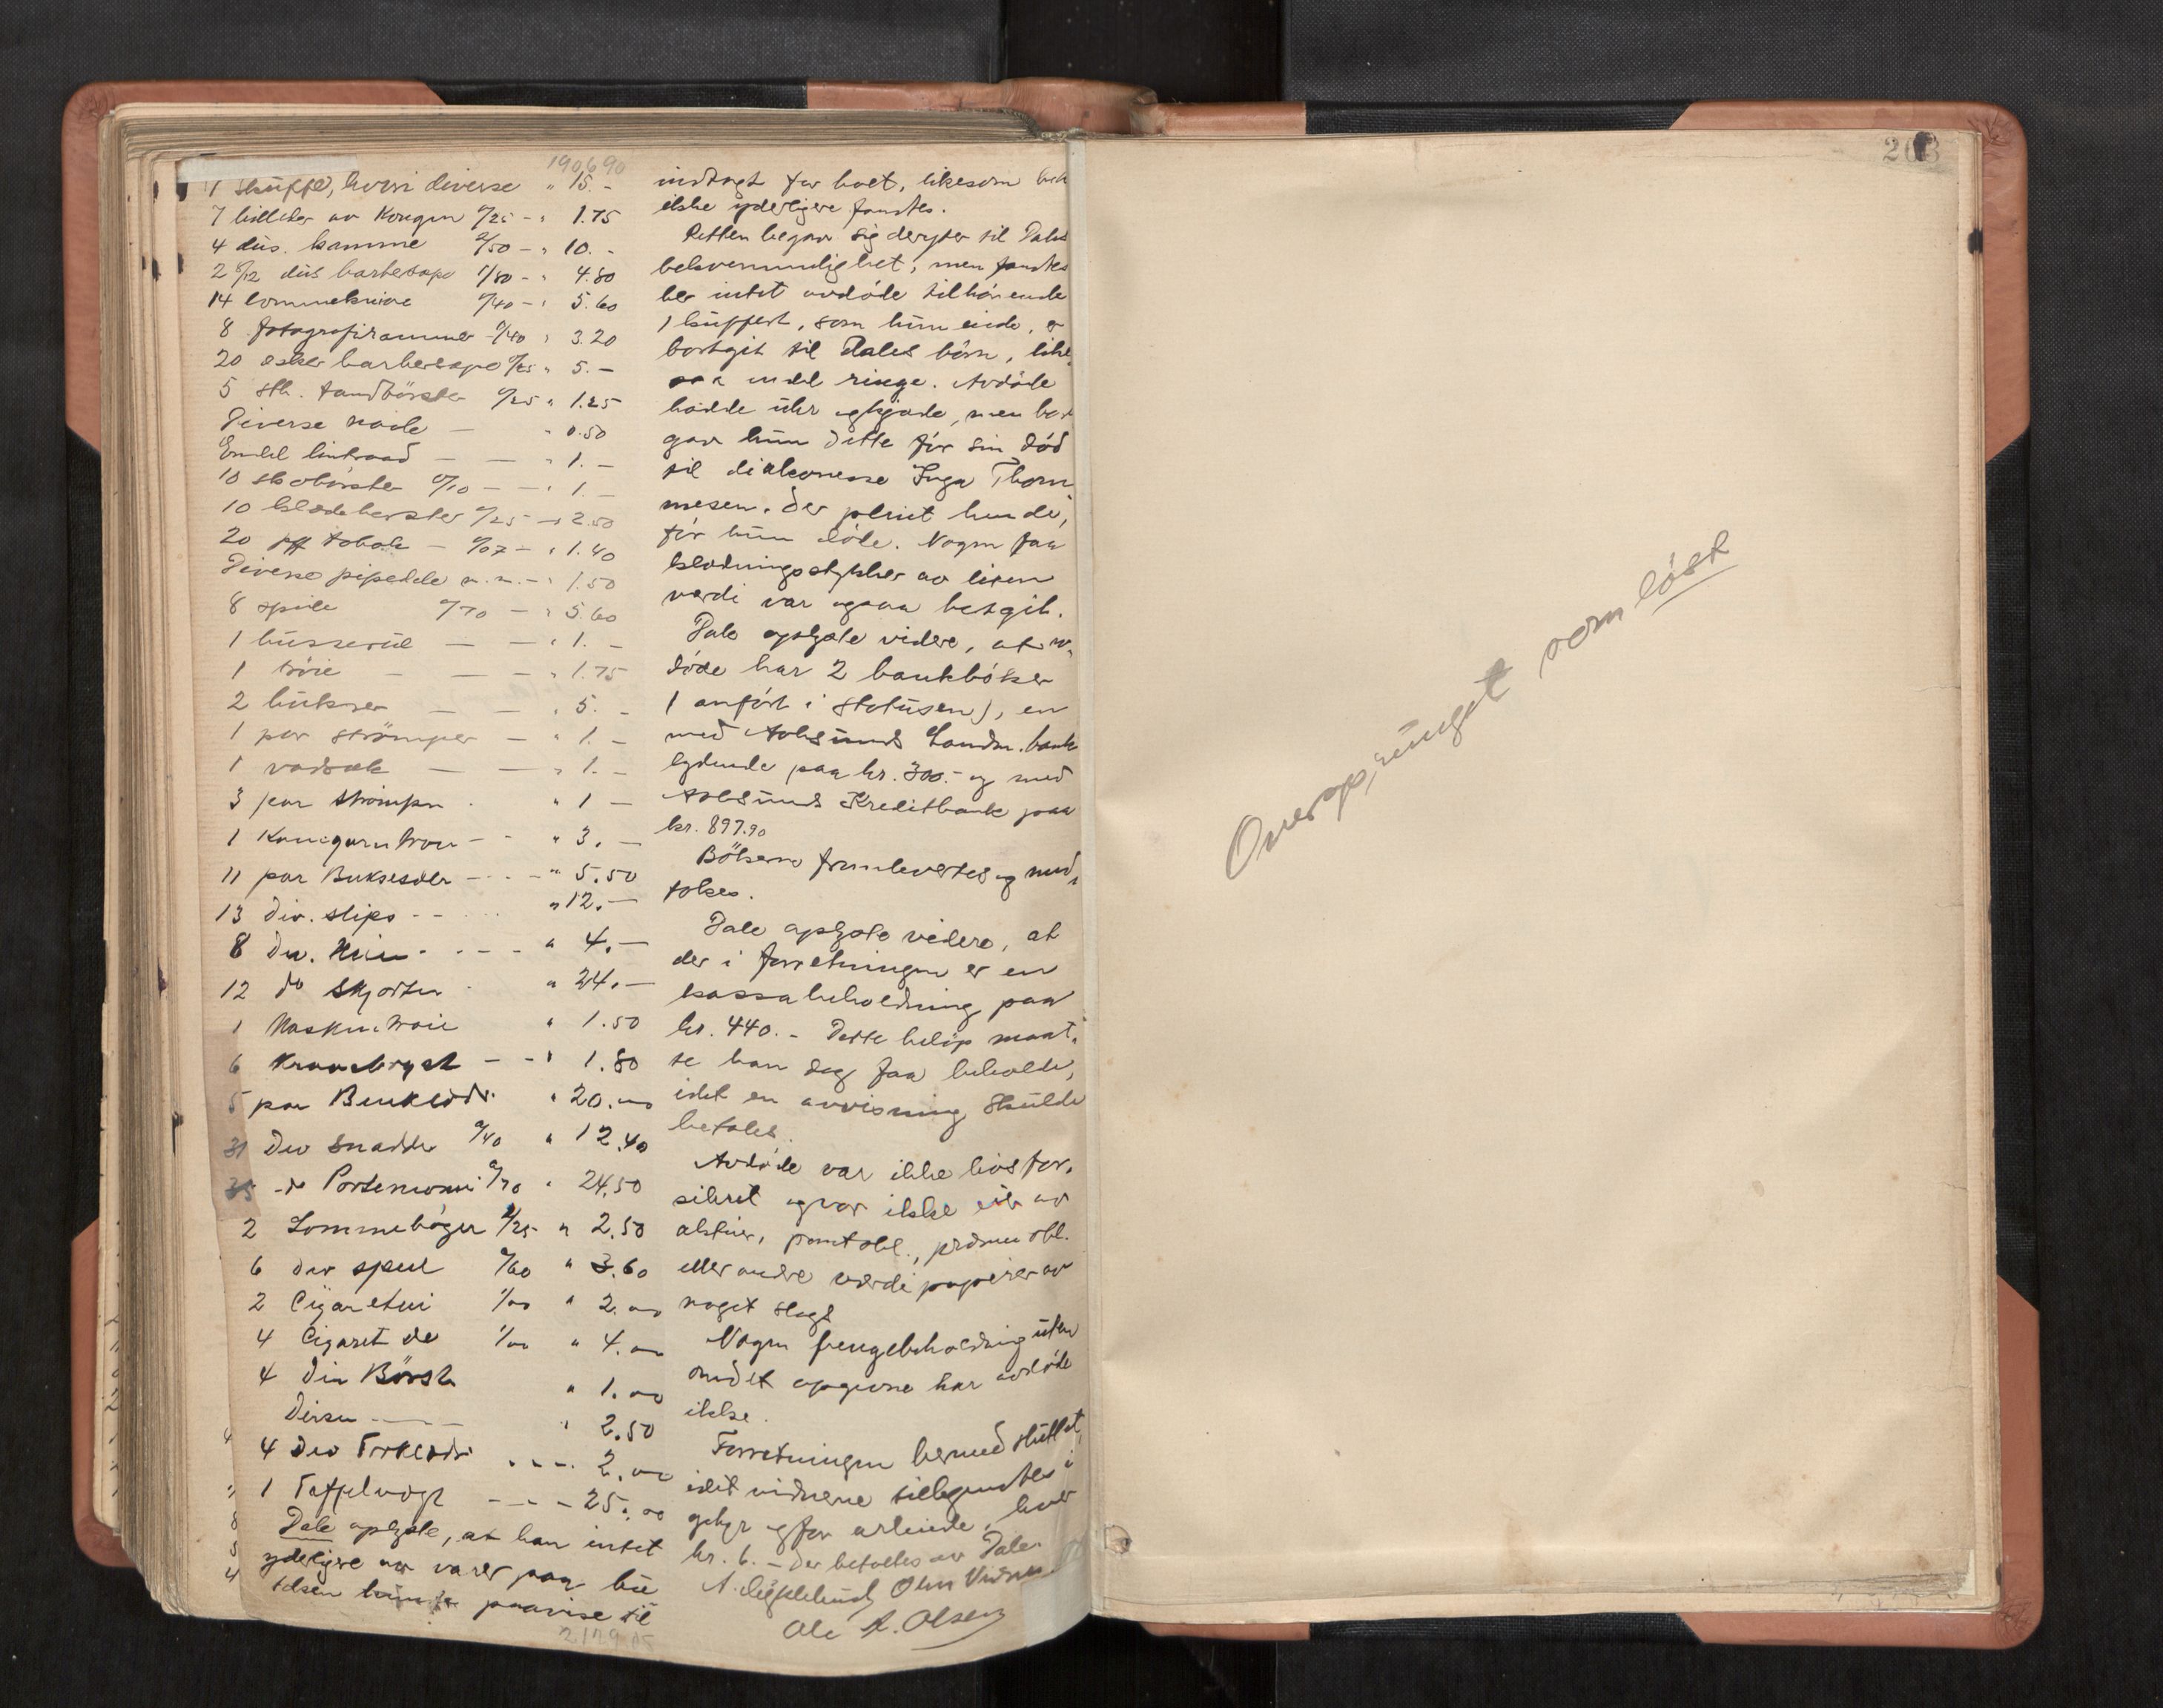 190690
1 skuffe, hvori diverse " 15.-
7 billeder av Kongen 0/25 - " 1.75
4 dus. kamme 2/50 - " 10.-
2 8/12 dus barbersæpe 1/80 - " 4.80
14 lommeknive 0/40 - " 5.60
8 fotografirammer 0/40 " 3.20
20 æsker barbersæpe 0/25 " 5.-
5 stk. tandbörster 0/25 " 1.25
Diverse naale - " 0.50
Endel lintraad - - " 1.-
10 skobörster 0/10 - - " 1.-
10 klædebørster 0/25 - " 2.50
20 tobak - 0/07 - " 1.40
Diverse pipedele m.m. - " 1.50
8 speile 0/70 - " 5.60
1 busserul - - " 1.-
1 tröie - - - " 1.75
2 bukser - - " 5.-
1 par strömper - " 1.-
1 vadsæk - - " 1.-
3 par strömper " 1 -
1 Kamgarn troie - - " 3.-
11 par Bukseseler - - - " 5.50
13 div. slips - - " 12.-
8 Div. - - - " 4.-
12 do Skjorter " 24.-
1 Maskin troie " 1.50
6 Kravebryst - - " 1.80
5 par Benklæder " 20.00
31 Div Snadder 0/40 " 12.40
35 do Portemoni 0/70 " 24.50
2 Lommebøger 1/25 " 2.50
6 div speil 0/60 " 3.60
2 Cigaretui 1/00 " 2.00
4 Cigaret do 1/00 " 4.00
4 Div Börster " 1.00
Diverse - - " 2.50
4 Div - - - 2.00
1 Taffelvægt - - - 25.00
Dale oplyste, at han intet
yderligere av varer paa bu
telsen kunde paavise til
2129.05
indtægt for boet, likesom
ikke yderligere fandtes.
Retten begav sig derefter til Dales
bekvemmelighet, men fandtes
her intet avdöde tilhörende
1 kuffert, som hun eiede, er
bortgit til Dales börn, like
saa endel ringe. Avdöde
hadde uhr og kjæde, men
gav hun dette för sin död
til diakonesse Inga Thom
mesen, der pleiet hende,
för hun döde. Nogen faa
klædningsstykker av liten
værdi var ogsaa bortgit.
Dale oplyste videre, at av,
döde har 2 bankböker
(anfört i statusen), en
med Aalesunds Landm.bank
lydende paa kr. 300.- og med
Aalesunds Kreditbank paa
kr. 897.90
Bökerne fremlevertes og med,
tokes.
Dale oplyste videre, at
der i forretningen er en
kassabeholdning paa
kr. 440.- Dette belöp maat,
te han dog faa beholde,
idet en anvisning skulde
betales.
Avdöde var ikke livsfor,
sikret og var ikke eier av
aktier, pantobl., præmieobl.
eller andre værdipapirer av
noget slags
Nogen pengebeholdning uten
om det opgivne har avdöde
ikke.
Forretningen hermed sluttet,
idet vidnerne tilkjendtes i
gebyr og for arbeide, hver
kr. 6.- der betaltes av Dale.
Ole A. Olsen
203
Oversprunget som löst